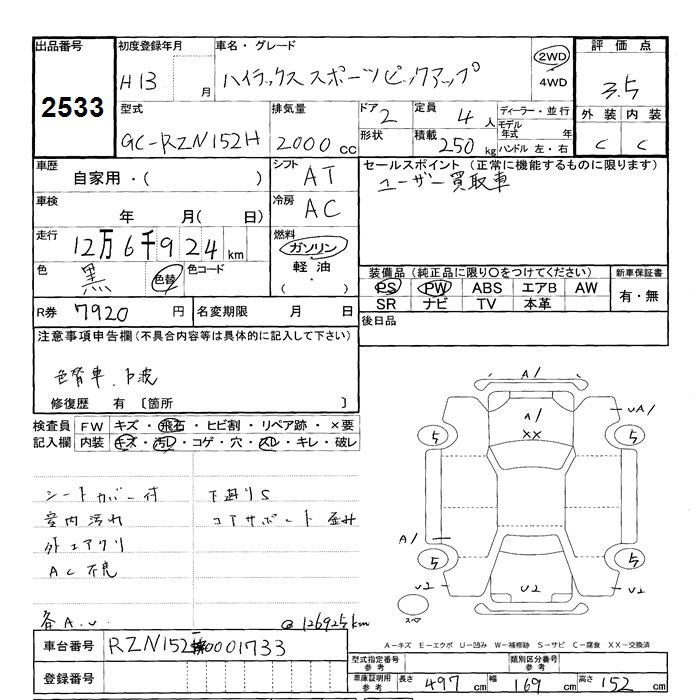 出品番号 初度登録年月 車名・グレード 評価点
2533 H13 月 ハイラックススポーツピックアップ 2WD 4WD 3.5
外装 内装
C C
型式 排気量 ドア 定員 ディーラー・並行
GC-RZN152H 2000cc 2 4人 モデル年式 年
形状 積載 250kg ハンドル 左・右
車歴 シフト セールスポイント (正常に機能するものに限ります)
自家用・( ) AT ユーザー買取車
車検 冷房
年 月( 日) AC
走行 燃料
12万6千924km ガソリン
色 色替 色コード 軽油
黒 ・( )
装備品 (純正品に限り○をつけてください) 新車保証書
PS PW ABS エアB AW 有・無
SR ナビ TV 本革
R券 7920円 名変期限 月 日 後日品
注意事項申告欄(不具合内容等は具体的に記入して下さい)
色替車.下波
修復歴 有 [箇所 ]
検査員 FW キズ・飛石・ヒビ割・リペア跡・×要
記入欄 内装 キズ・汚レ・コゲ・穴・スレ・キレ・破レ
シートカバー付 下廻りS
室内汚れ コアサポート歪み
外エアクリ
AC不良
@126925km
A1
A1
XX
UA1
5 5
A1
5 5
U2 U2 U2
スペア
A-キズ E-エクボ U-凹み W-補修跡 S-サビ C-腐食 XX-交換済
車台番号 RZN152-0001733
登録番号
型式指定番号 参考 類別区分番号 参考
車庫証明用 参考 長さ 497cm 幅 169cm 高さ 152cm